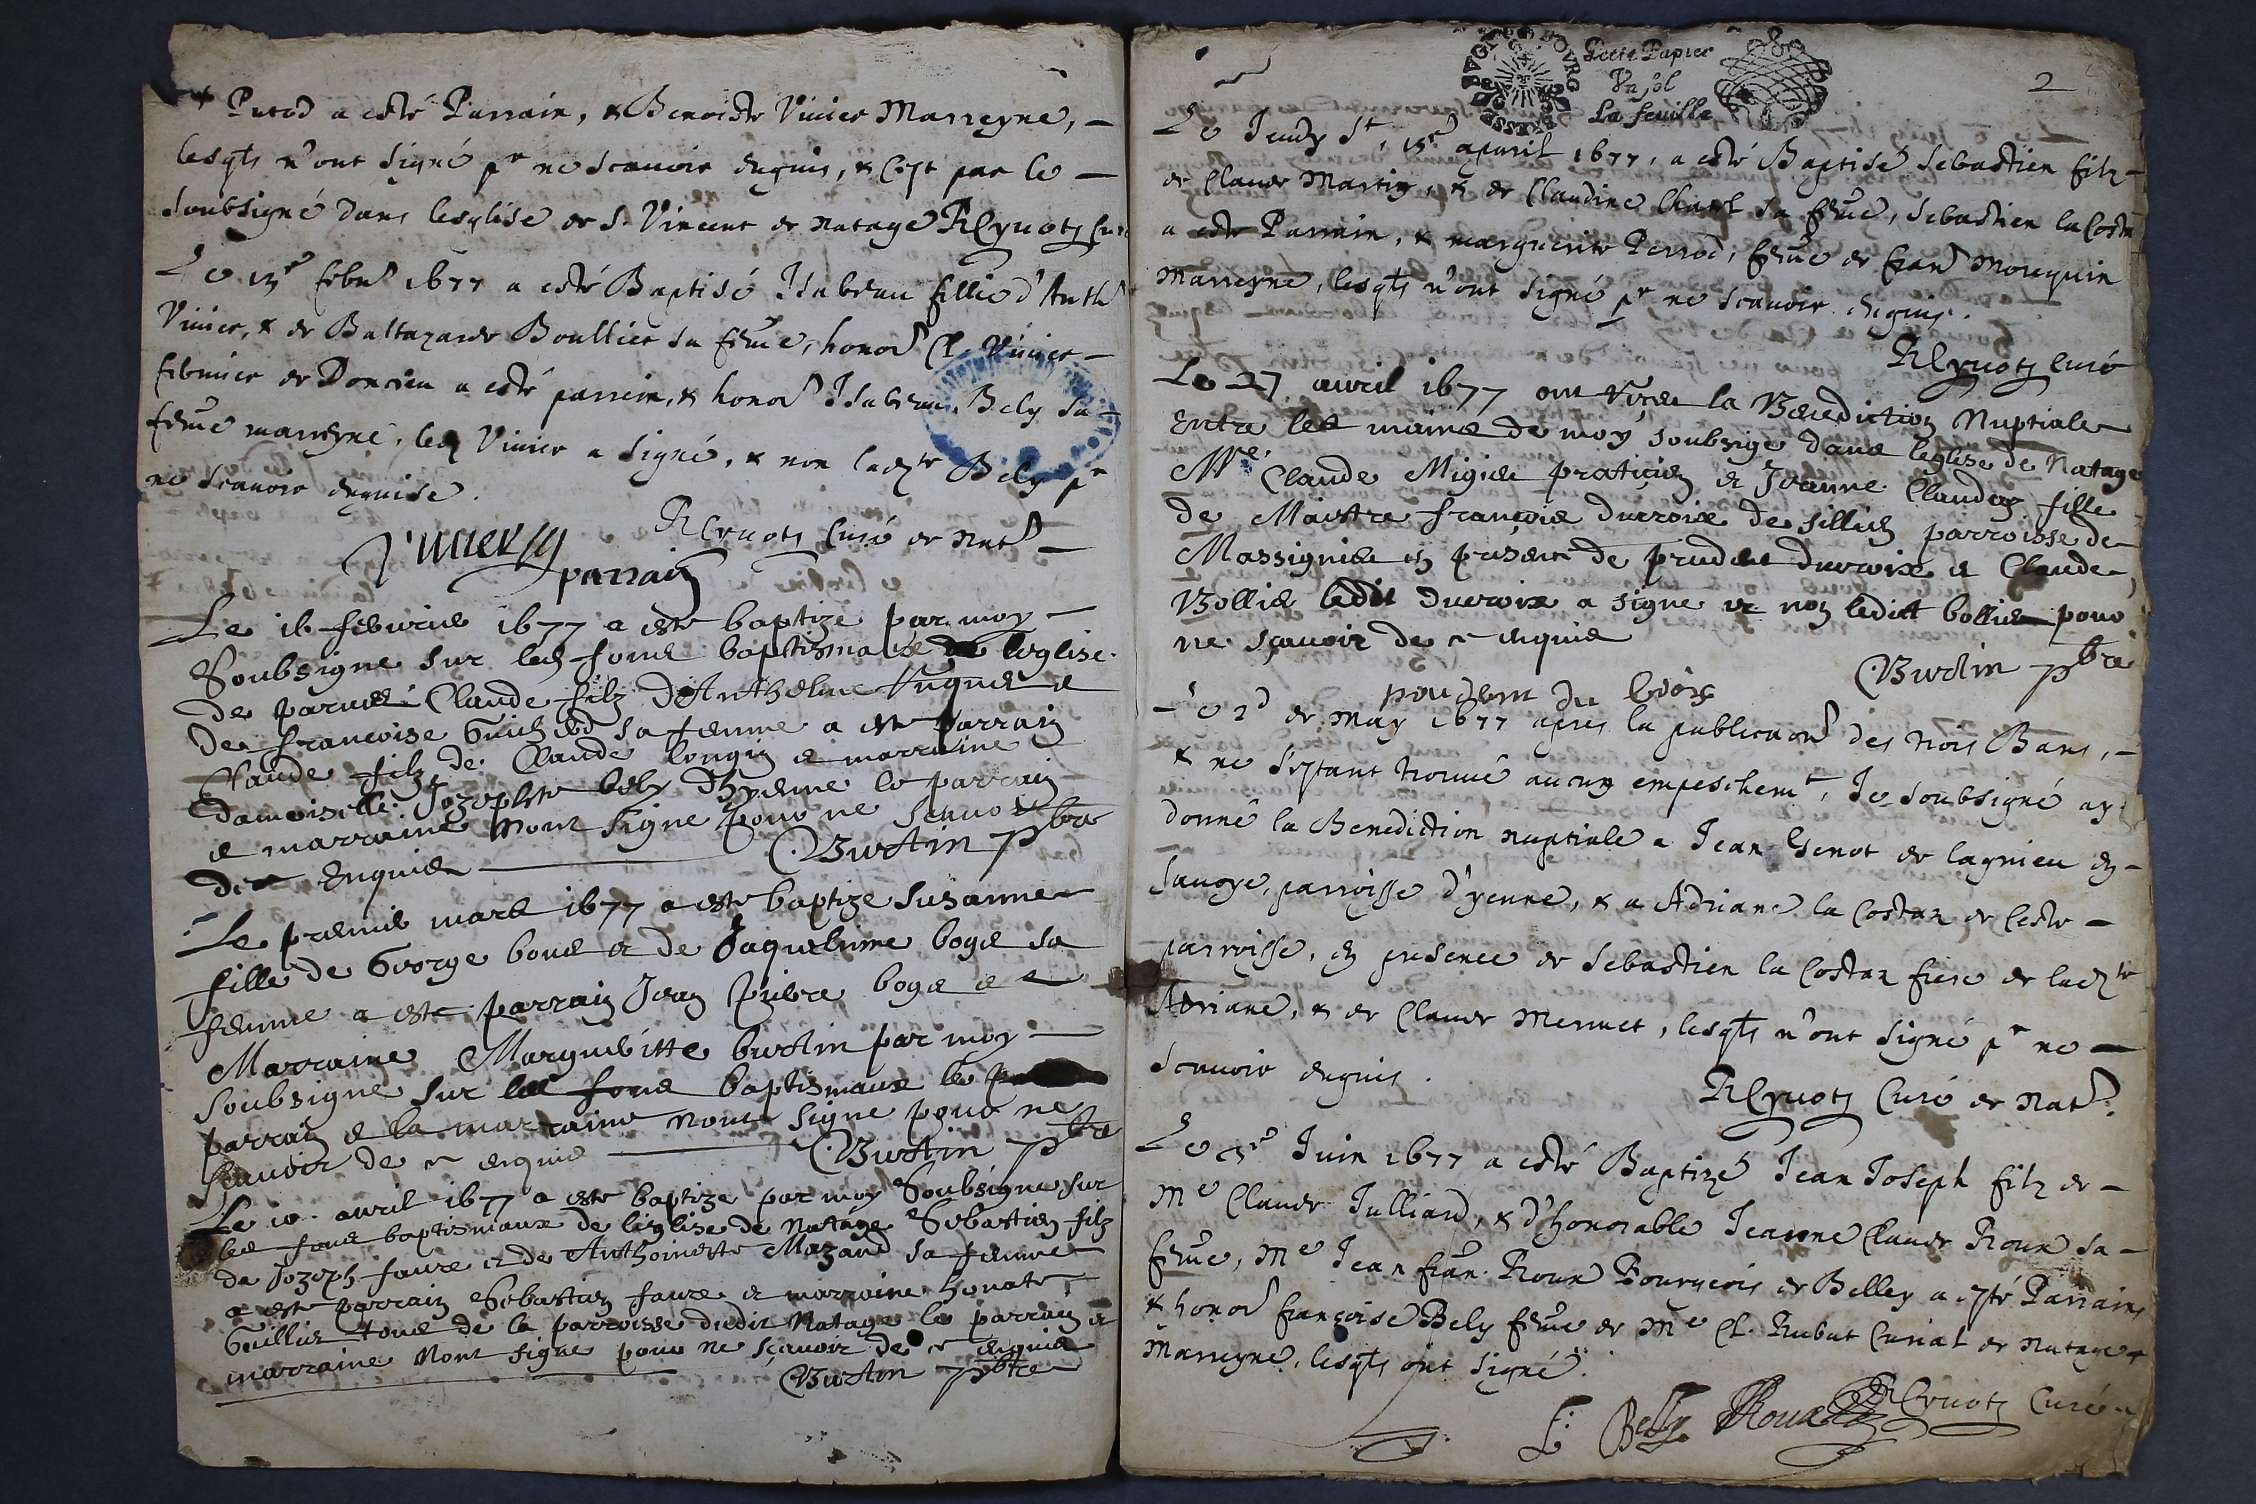 Putod a esté Parrain, & Benoiste Vinier Marreyne,
lesqls n'ont signé pr ne scavoir enquis, & c'est par le
soubsigné dans lesglise de St Vincent de Natage RCynotz Curé
Le 15e febvr 1677 a esté Baptisé Isabeau fillie d'Anth
Vinier, & de Baltazarde Boullier sa feme, honor Cl. Vinier
febmier de Doncieu a esté parrein, & honor Isabeau Bely sa
feme marreyne, led Vinier a signé, & non ladte Bely pr
ne scavoir enquise.
RCynotz Curé de Nat
Vinier
parrain
Le 16 febvrier 1677 a este baptize par moy
Soubsigne sur les fons baptismaux de leglise
de parves Claude filz d'Anthelme Vuguet et
de francoise sa femme a este parrain
Claude filz de Claude longin et marraine
damoiselle Jozephte bely d'hyenne le parrain
et marraine nont signe pour ne scavoir
de ce enquis Burtin pbre
Le premier mars 1677 a este baptize Susanne
fille de George bone et de Jaquelinne boge sa
femme a este parrain Jean pierre boge et
Marraine Margueritte burtin par moy
soubsigne sur les fons baptismaux le
parrain et la marraine nont signe pour ne
scavoir de ce enquis Burtin pbre
Le 10 avril 1677 a este baptize par moy Soubsigne sur
les fons baptismaux de leglise de Natage Sebastien filz
de Jozeph faure et de Anthoinette Mazard sa femme
a este parrain Sebastien faure et marraine honate
Guillier tous de la parroisse dudit Natage le parrain et
marraine nont signe pour ne sçavoir de ce enquis
Burtin pbre
Cette Papier
Vn sol
La feuille
2
Le Jeudy St, 15e apuril 1677, a esté Baptisé Sebastien filz
de Claude Martin, & de Claudine Chatel sa feme, Sebastien la Coste
a esté Parrain, & marguerite Perrod, feme de fran Mouquin
Marreyne, lesqls n'ont signé pr ne scavoir enquis.
RCynotz Curé
Le 27 avril 1677 ont receu la Benediction Nuptiale
Entre les mains de moy soubsigne dans leglise de Natage
Me Claude Migier praticien et Jeanne Claudaz fille
de Maistre françois ducroix de sillien parroisse de
Massignieu en presence de prudent ducroix et Claude
Bollier ledit ducroix a signe et non ledict bollier pour
ne sçavoir de ce enquis
Burtin pbre
Le 2d de May 1677 apres la publicaon des trois Bans,
& ne s'estant trouvé aucun empeschemt, Je soubsigné ay
donné la Benediction nuptiale a Jean Genot de lagnieu en
Savoye, parroisse d'yenne, & a Adriane la Costaz de ceste
parroisse, en presence de Sebastien la Costaz frere de ladte
Adriane, & de Claude Mermet, lesqls n'ont signé pr ne
scavoir enquis.
RCynotz Curé de Nat.
Le 5e Juin 1677 a esté Baptizé Jean Joseph filz de
Me Claude Julliard, & d'honorable Jeanne Claude Roux sa
feme, Me Jean fran. Roux Bourgeois de Belley a esté Parrain,
& honor françoise Bely feme de Me Cl. Rubat Curial de Natage
Marreyne, lesqls ont signé.
f. Belly Roux RCynotz Curé